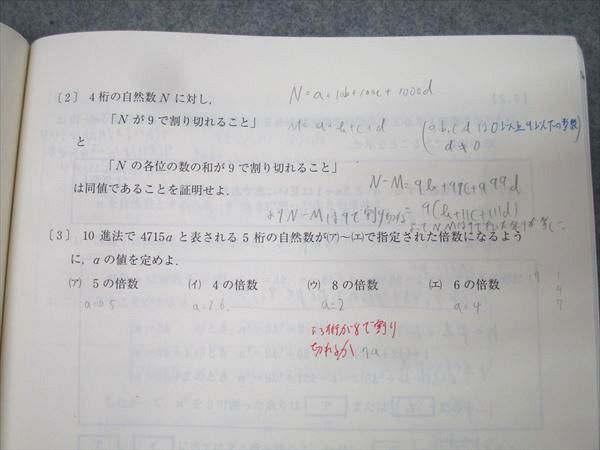 〔2〕 4桁の自然数Nに対し，
N=a+10b+100c+1000d
「Nが9で割り切れること」
M=a+b+c+d
(a,b,c,dは0以上9以下の整数
d≠0)
と
「Nの各位の数の和が9で割り切れること」
は同値であることを証明せよ．
N-M=9b+99c+999d
=9(b+11c+111d)
よりN-Mは9で割り切れる
〔3〕 10進法で4715aと表される5桁の自然数が(ア)～(エ)で指定された倍数になるよう
に，aの値を定めよ．
(ア) 5の倍数 (イ) 4の倍数 (ウ) 8の倍数 (エ) 6の倍数
a=0.5 a=2.6. a=2 a=4
下3桁が8で割り
切れるか